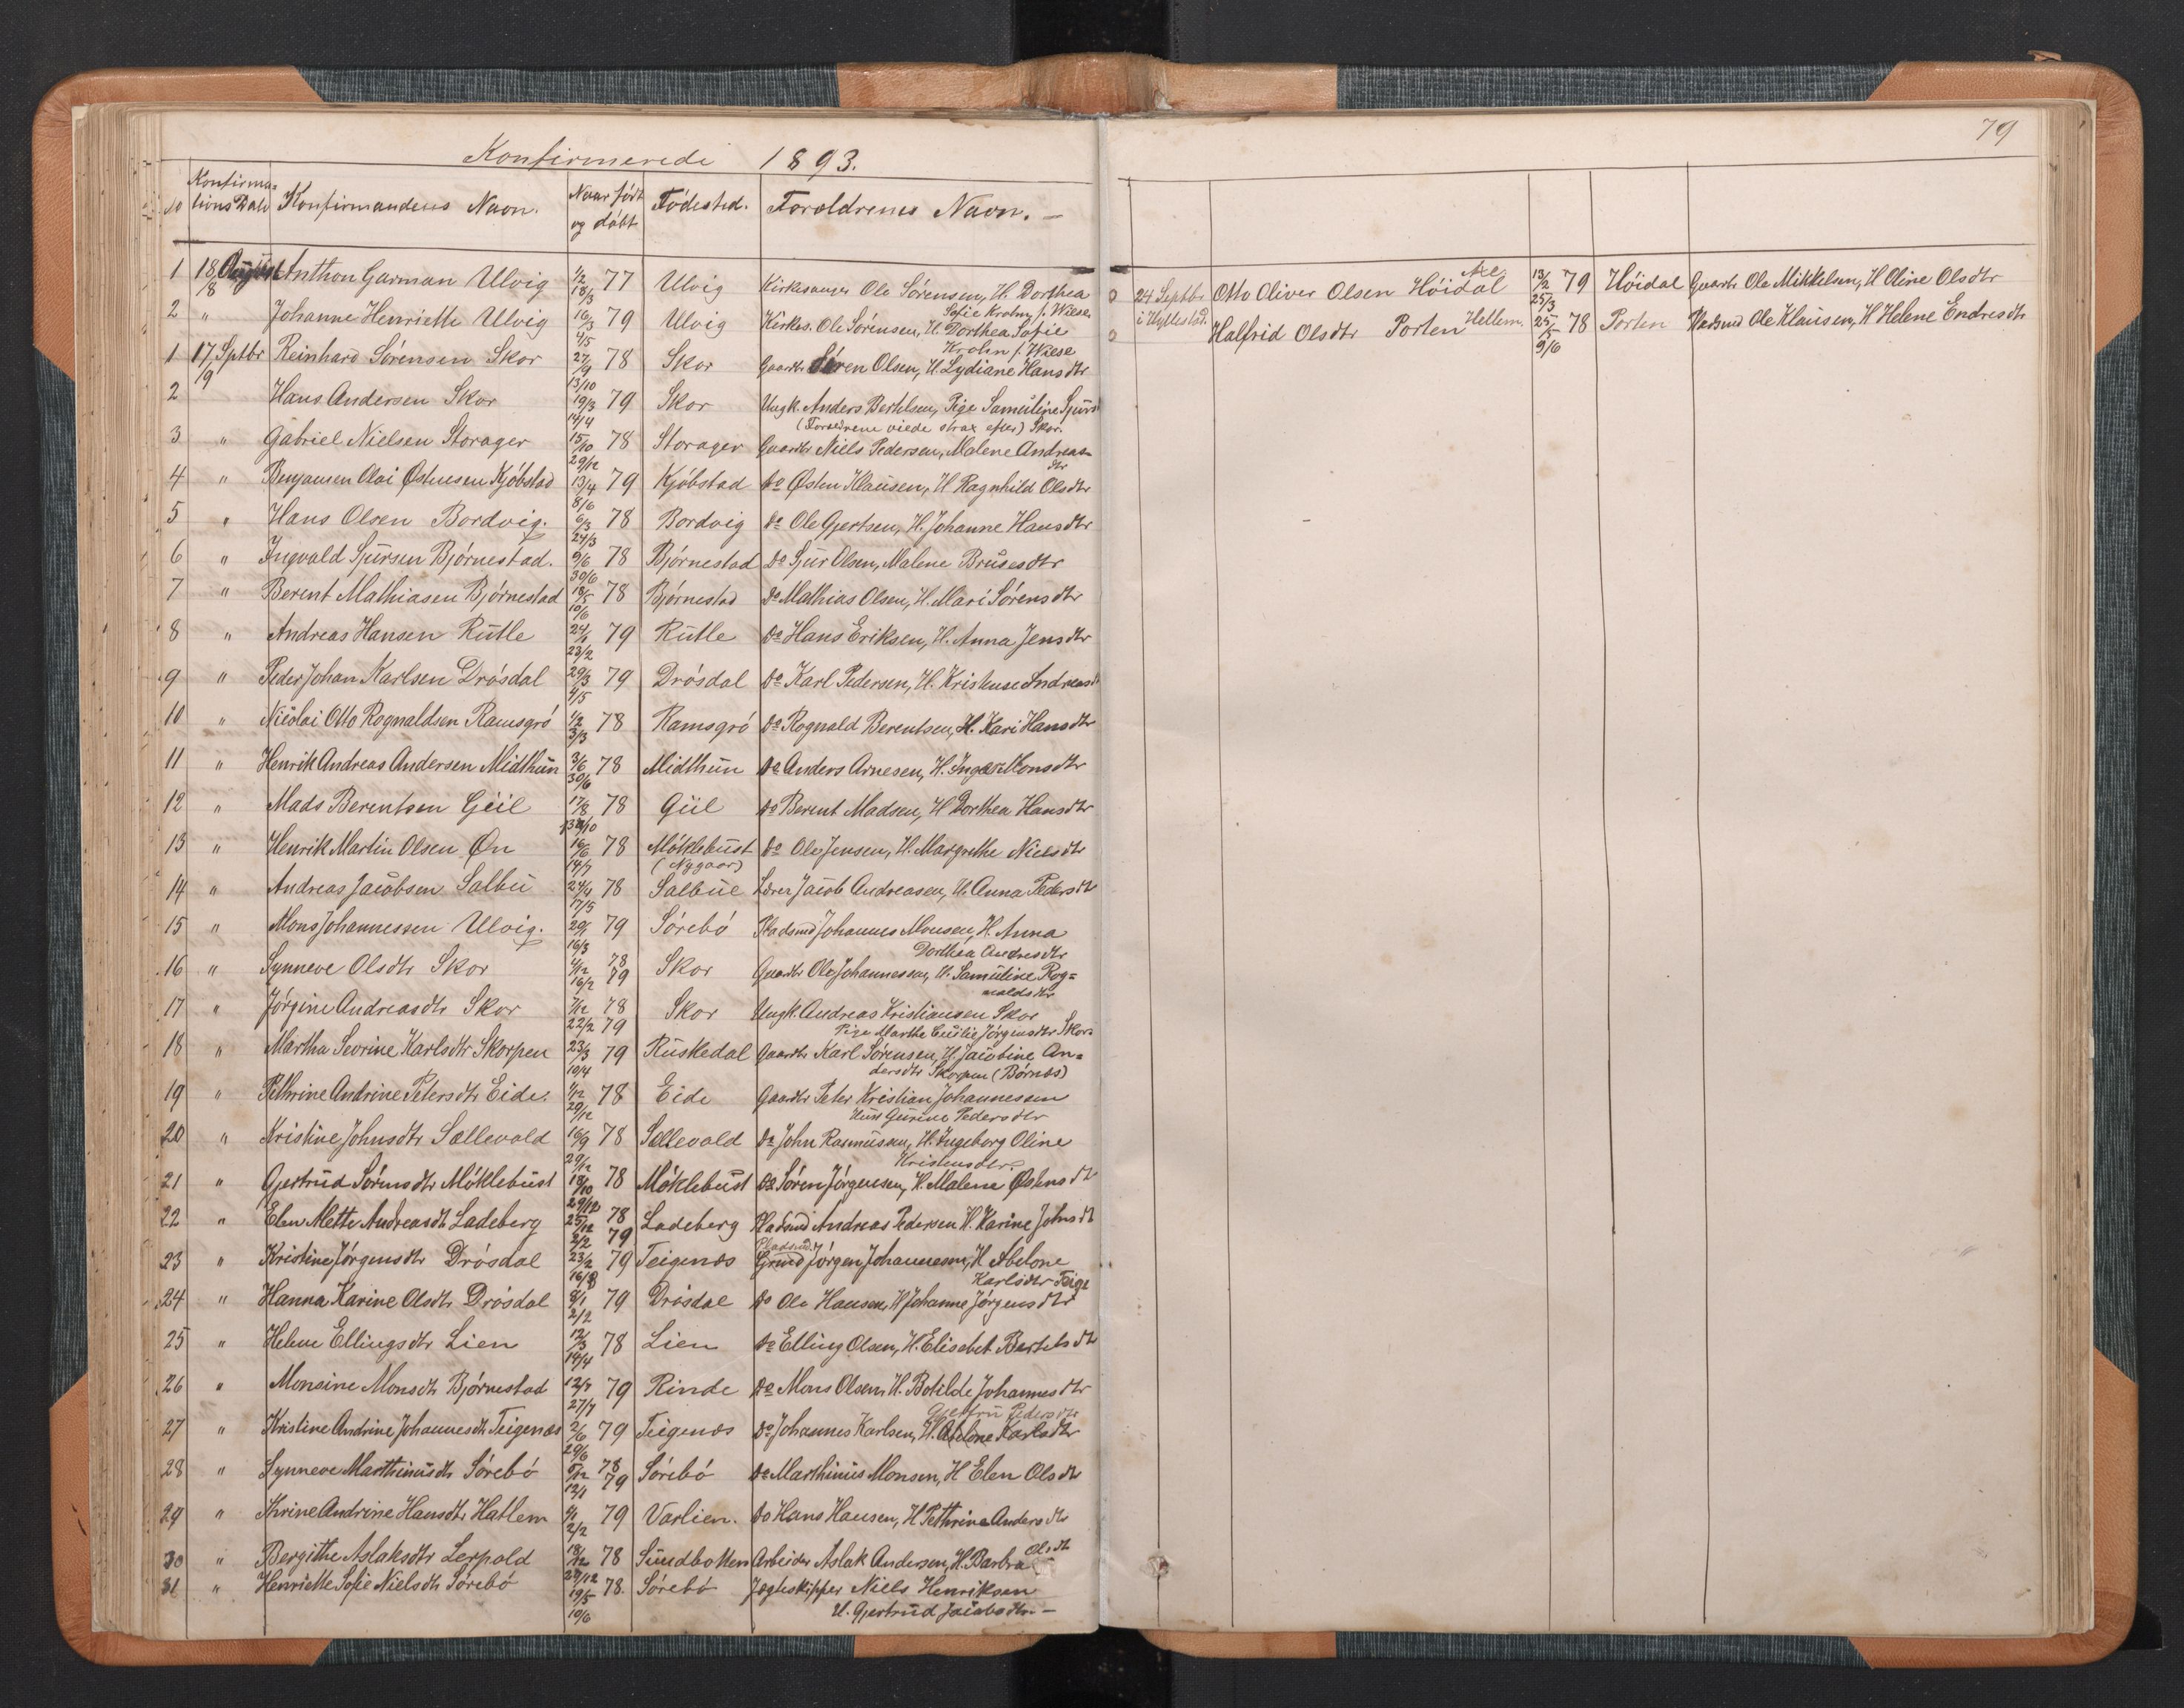 Konfirmerede 1893.
79
No Konfirma= tions Dato Konfirmandens Navn. Naar født og døbt Fødested. Foreldrenes Navn. —
1 18/8 August Anthon Garman Ulvig 1/2 18/3 77 Ulvig Kirkesanger Ole Sørensen, H. Dorthea
Sofie Krohn f. Wiese
2 " Johanne Henriette Ulvig 16/3 4/5 79 Ulvig Kirkes. Ole Sørensen, H. Dorthea Sofie
Krohn f. Wiese
1 17/9 Sptbr Reinhard Sørensen Skor 27/9 13/10 78 Skor Gaardbr Søren Olsen, H. Lydiane Hansdtr
2 Hans Andersen Skor 19/3 14/4 79 Skor Ungk. Anders Bertelsen, Pige Samuline Sjurs
(Forældrene viede strax efter) Skor.
3 " Gabriel Nielsen Storager 15/10 29/12 78 Storager Gaardbr Niels Pedersen, Malene Andreas=
dtr
4 " Benjamen Olai Østensen Kjøbstad 13/4 8/6 79 Kjøbstad Do Østen Klausen, H Ragnhild Olsdtr
5 " Hans Olsen Bordvig. 6/3 24/3 78 Bordvig Do Ole Gjertsen, H. Johanne Hansdtr
6 " Ingvald Sjursen Bjørnestad. 9/6 30/6 78 Bjørnestad Do Sjur Olsen, Malene Brusesdtr
7 " Berent Mathiasen Bjørnestad 18/5 10/6 78 Bjørnestad Do Mathias Olsen, H. Mari Sørensdtr
8 " Andreas Hansen Rutle 24/1 23/2 79 Rutle Do Hans Eriksen, H. Anna Jensdtr
9 " Peder Johan Karlsen Drøsdal 29/3 4/5 79 Drøsdal Do Karl Pedersen, H. Kristense Andreasd
10 " Nicolai Otto Rognaldsen Ramsgrø 1/2 3/3 78 Ramsgrø Do Rognald Berentsen, H. Kari Hansdtr
11 " Henrik Andreas Andersen Midthun 3/6 30/6 78 Midthun Do Anders Arnesen, H. Inger Monsdtr
12 " Mads Berentsen Güil 17/8 13/10 78 Güil Do Berent Madsen, H Dorthea Hansdtr
13 " Henrik Martin Olsen Øn 16/6 14/7 78 Møklebust Do Ole Jensen, H. Margrethe Nielsdtr
(Nygaar)
14 " Andreas Jacobsen Salbu 24/4 17/5 78 Salbue Lærer Jacob Andreasen, H. Anna Pedersdtr
15 " Mons Johannessen Ulvig. 20/1 16/3 79 Sørebø Pladsmd Johannes Monsen, H. Anna
Dorthea Andresdtr
16 " Synneve Olsdtr Skor 4/12 78 16/2 79 Skor Gaardbr Ole Johannessen, H. Samuline Rog=
naldsdtr
17 " Jørgine Andreasdtr Skor 7/12 78 22/2 79 Skor Ungk. Andreas Kristiansen Skor
Pige Marthe Cecilie Jørgensdtr Skor
18 " Martha Severine Karlsdtr Skorpen 23/3 10/4 79 Ruskedal Gaardbr Karl Sørensen, H. Jacobine An=
dersdtr Skorpen (Børnes)
19 " Pethrine Andrine Petersdtr Eide. 1/12 29/12 78 Eide Gaardbr Peter Kristian Johannessen
Hust Gurine Pedersdtr
20 " Kristine Johnsdtr Sællevold 16/9 29/12 78 Sællevold Do John Rasmussen, H. Ingeborg Oline
Kristensdtr.
21 " Gjertrud Sørensdtr Møklebust 18/10 29/12 78 Møklebust Do Søren Jørgensen, H. Malene Østensdtr
22 " Elen Mette Andreasdtr Ladeberg 25/12 78 2/2 79 Ladeberg Pladsmd Andreas Pedersen H. Karine Johnsdtr
23 " Kristine Jørgensdtr Drøsdal 23/2 16/8 79 Teigenæs Pladsmd. Jørgen Johannesen, H Abelone
Karlsdtr Teige
24 " Hanna Karine Olsdtr Drøsdal 8/1 2/2 79 Drøsdal Do Ole Hansen, H Johanne Jørgensdtr
25 " Helene Ellingsdtr Lien 12/3 14/4 78 Lien Do Elling Olsen, H. Elisabet Bertelsdtr
26 " Monsine Monsdtr Bjørnestad 12/4 27/4 79 Rinde Do Mons Olsen, H. Botilde Johannesdtr
Gjertru Pedersdtr
27 " Kristine Andrine Johannesdtr Teigenæs 2/6 29/6 79 Teigenæs Do Johannes Karlsen, H. Abelone Karlsdtr
28 " Synneve Marthinusdtr Sørebø 5/12 78 12/1 79 Sørebø Do Marthinus Monsen, H Elen Olsdtr
29 " Thrine Andrine Hansdtr Hatlem 4/1 2/2 79 Varlien. Do Hans Hansen, H Pethrine Andersdtr
30 " Bergithe Aslaksdtr Lerpold 18/12 29/12 78 Sundbotten Arbeider Aslak Andersen, H. Barbra Olsdtr
31 " Henriette Sofie Nielsdtr Sørebø 19/5 10/6 78 Sørebø Jægteskipper Niels Henriksen
H. Gjertrud Jacobsdtr —
0 24 Septbr i Hyllestad. Otto Oliver Olsen Höidal 13/2 25/3 79 Höidal Gaardbr Ole Mikkelsen, H Oline Olsdtr
0 Halfrid Olsdtr Porten Hellem. 25/5 9/6 78 Porten Pladsmd Ole Klausen, H Helene Endresdtr